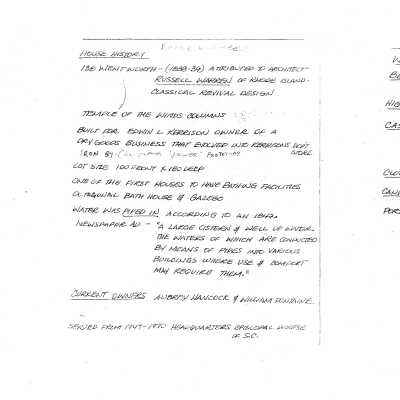 HOUSE HISTORY
138 WENTWORTH - (1838-39) ATTRIBUTED TO ARCHITECT
RUSSELL WARREN OF RHODE ISLAND.
CLASSICAL REVIVAL DESIGN
TEMPLE OF THE WINDS COLUMNS
BUILT FOR EDWIN L KERRISON OWNER OF A
DRY GOODS BUSINESS THAT EVOLVED INTO KERRISONS DEPT
STORE
IRON BY
LOT SIZE 100 FRONT X 180 DEEP
ONE OF THE FIRST HOUSES TO HAVE BATHING FACILITIES
OCTAGONAL BATH HOUSE & GAZEBO
WATER WAS PIPED IN ACCORDING TO AN
NEWSPAPER AD - "A LARGE CISTERN & WELL OF WATER
THE WATERS OF WHICH ARE CONDUCTED
BY MEANS OF PIPES INTO VARIOUS
BUILDINGS WHERE USE & COMFORT
MAY REQUIRE THEM."
CURRENT OWNERS AUBREY HANCOCK & WILLIAM FONTAINE
SERVED FROM HEADQUARTERS EPISCOPAL DIOCESE
OF S.C.